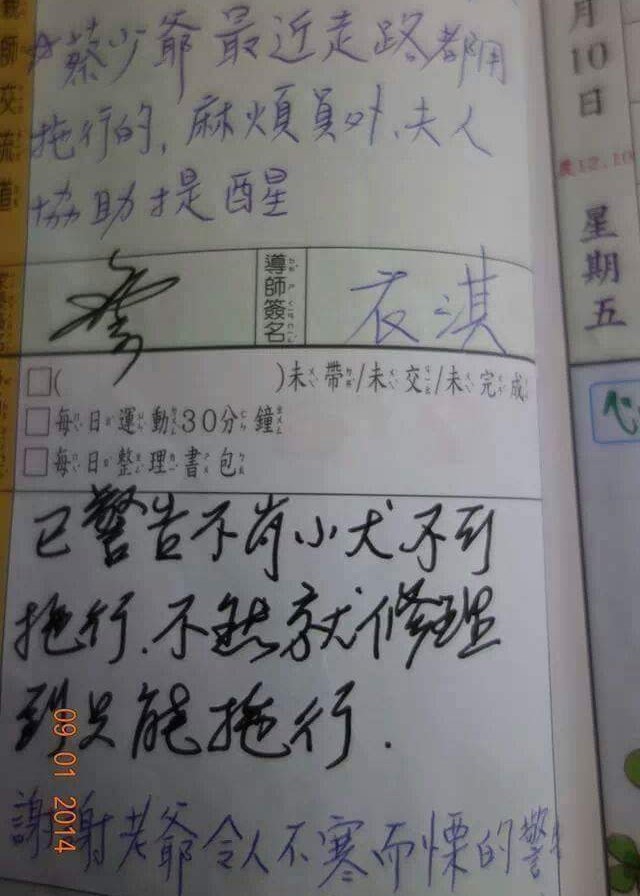 親師交流道
☆蔡少爺最近走路都用
拖行的,麻煩員外、夫人
協助提醒
導師簽名
衣淇
□( )未帶/未交/未完成
□每日運動30分鐘
□每日整理書包
已警告不肖小犬不到
拖行.不然就修理
到只能拖行.
謝謝老爺令人不寒而慄的警
09 01 2014
月10日
農12.10
星期五